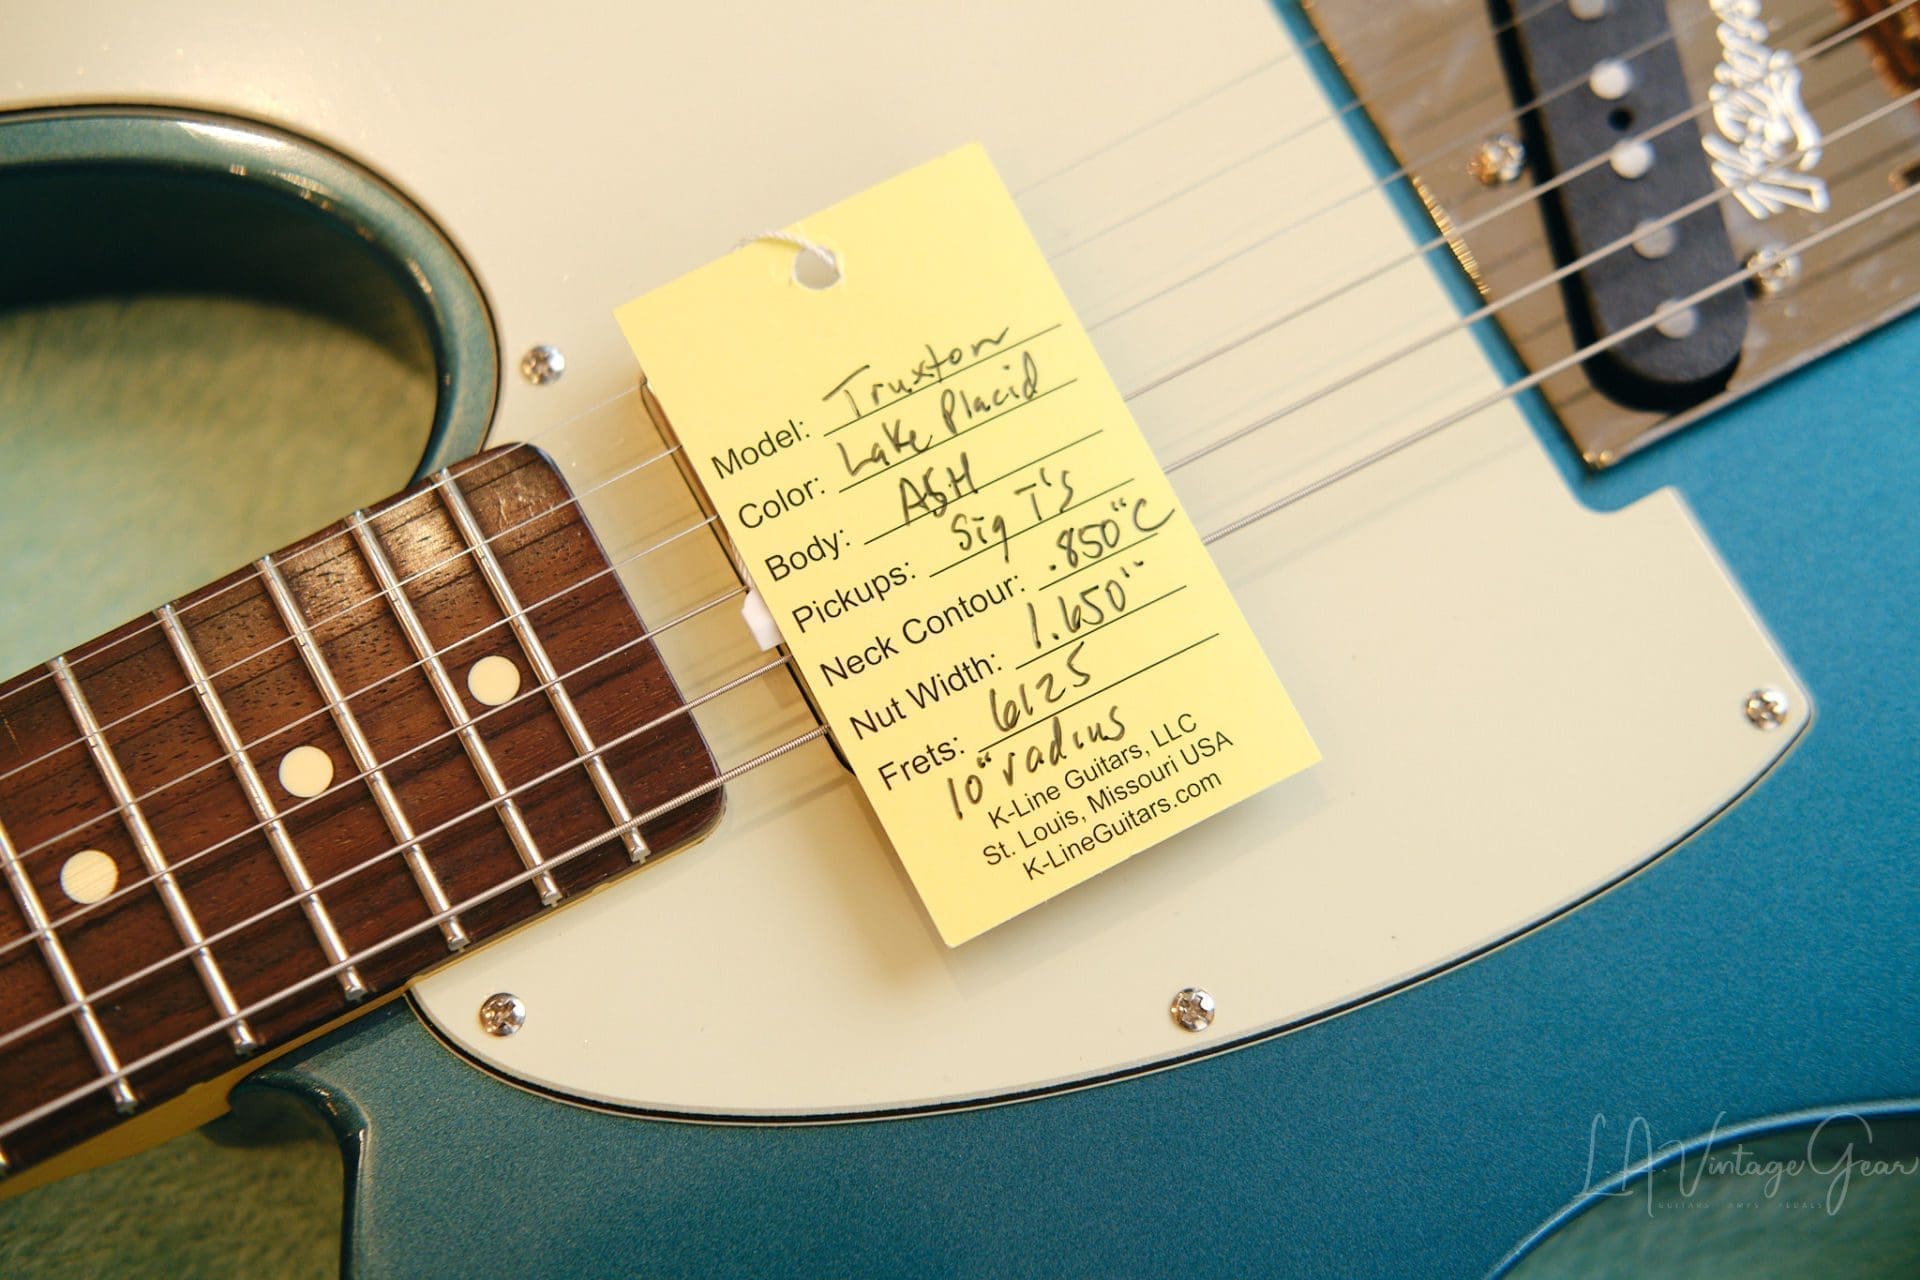 Model: Truxton
Color: Lake Placid
Body: ASH
Pickups: Sig T's
Neck Contour: .850" C
Nut Width: 1.650"
Frets: 6125
10" radius
K-Line Guitars, LLC
St. Louis, Missouri USA
K-LineGuitars.com
K-Line
L.A. Vintage Gear
GUITARS AMPS PEDALS